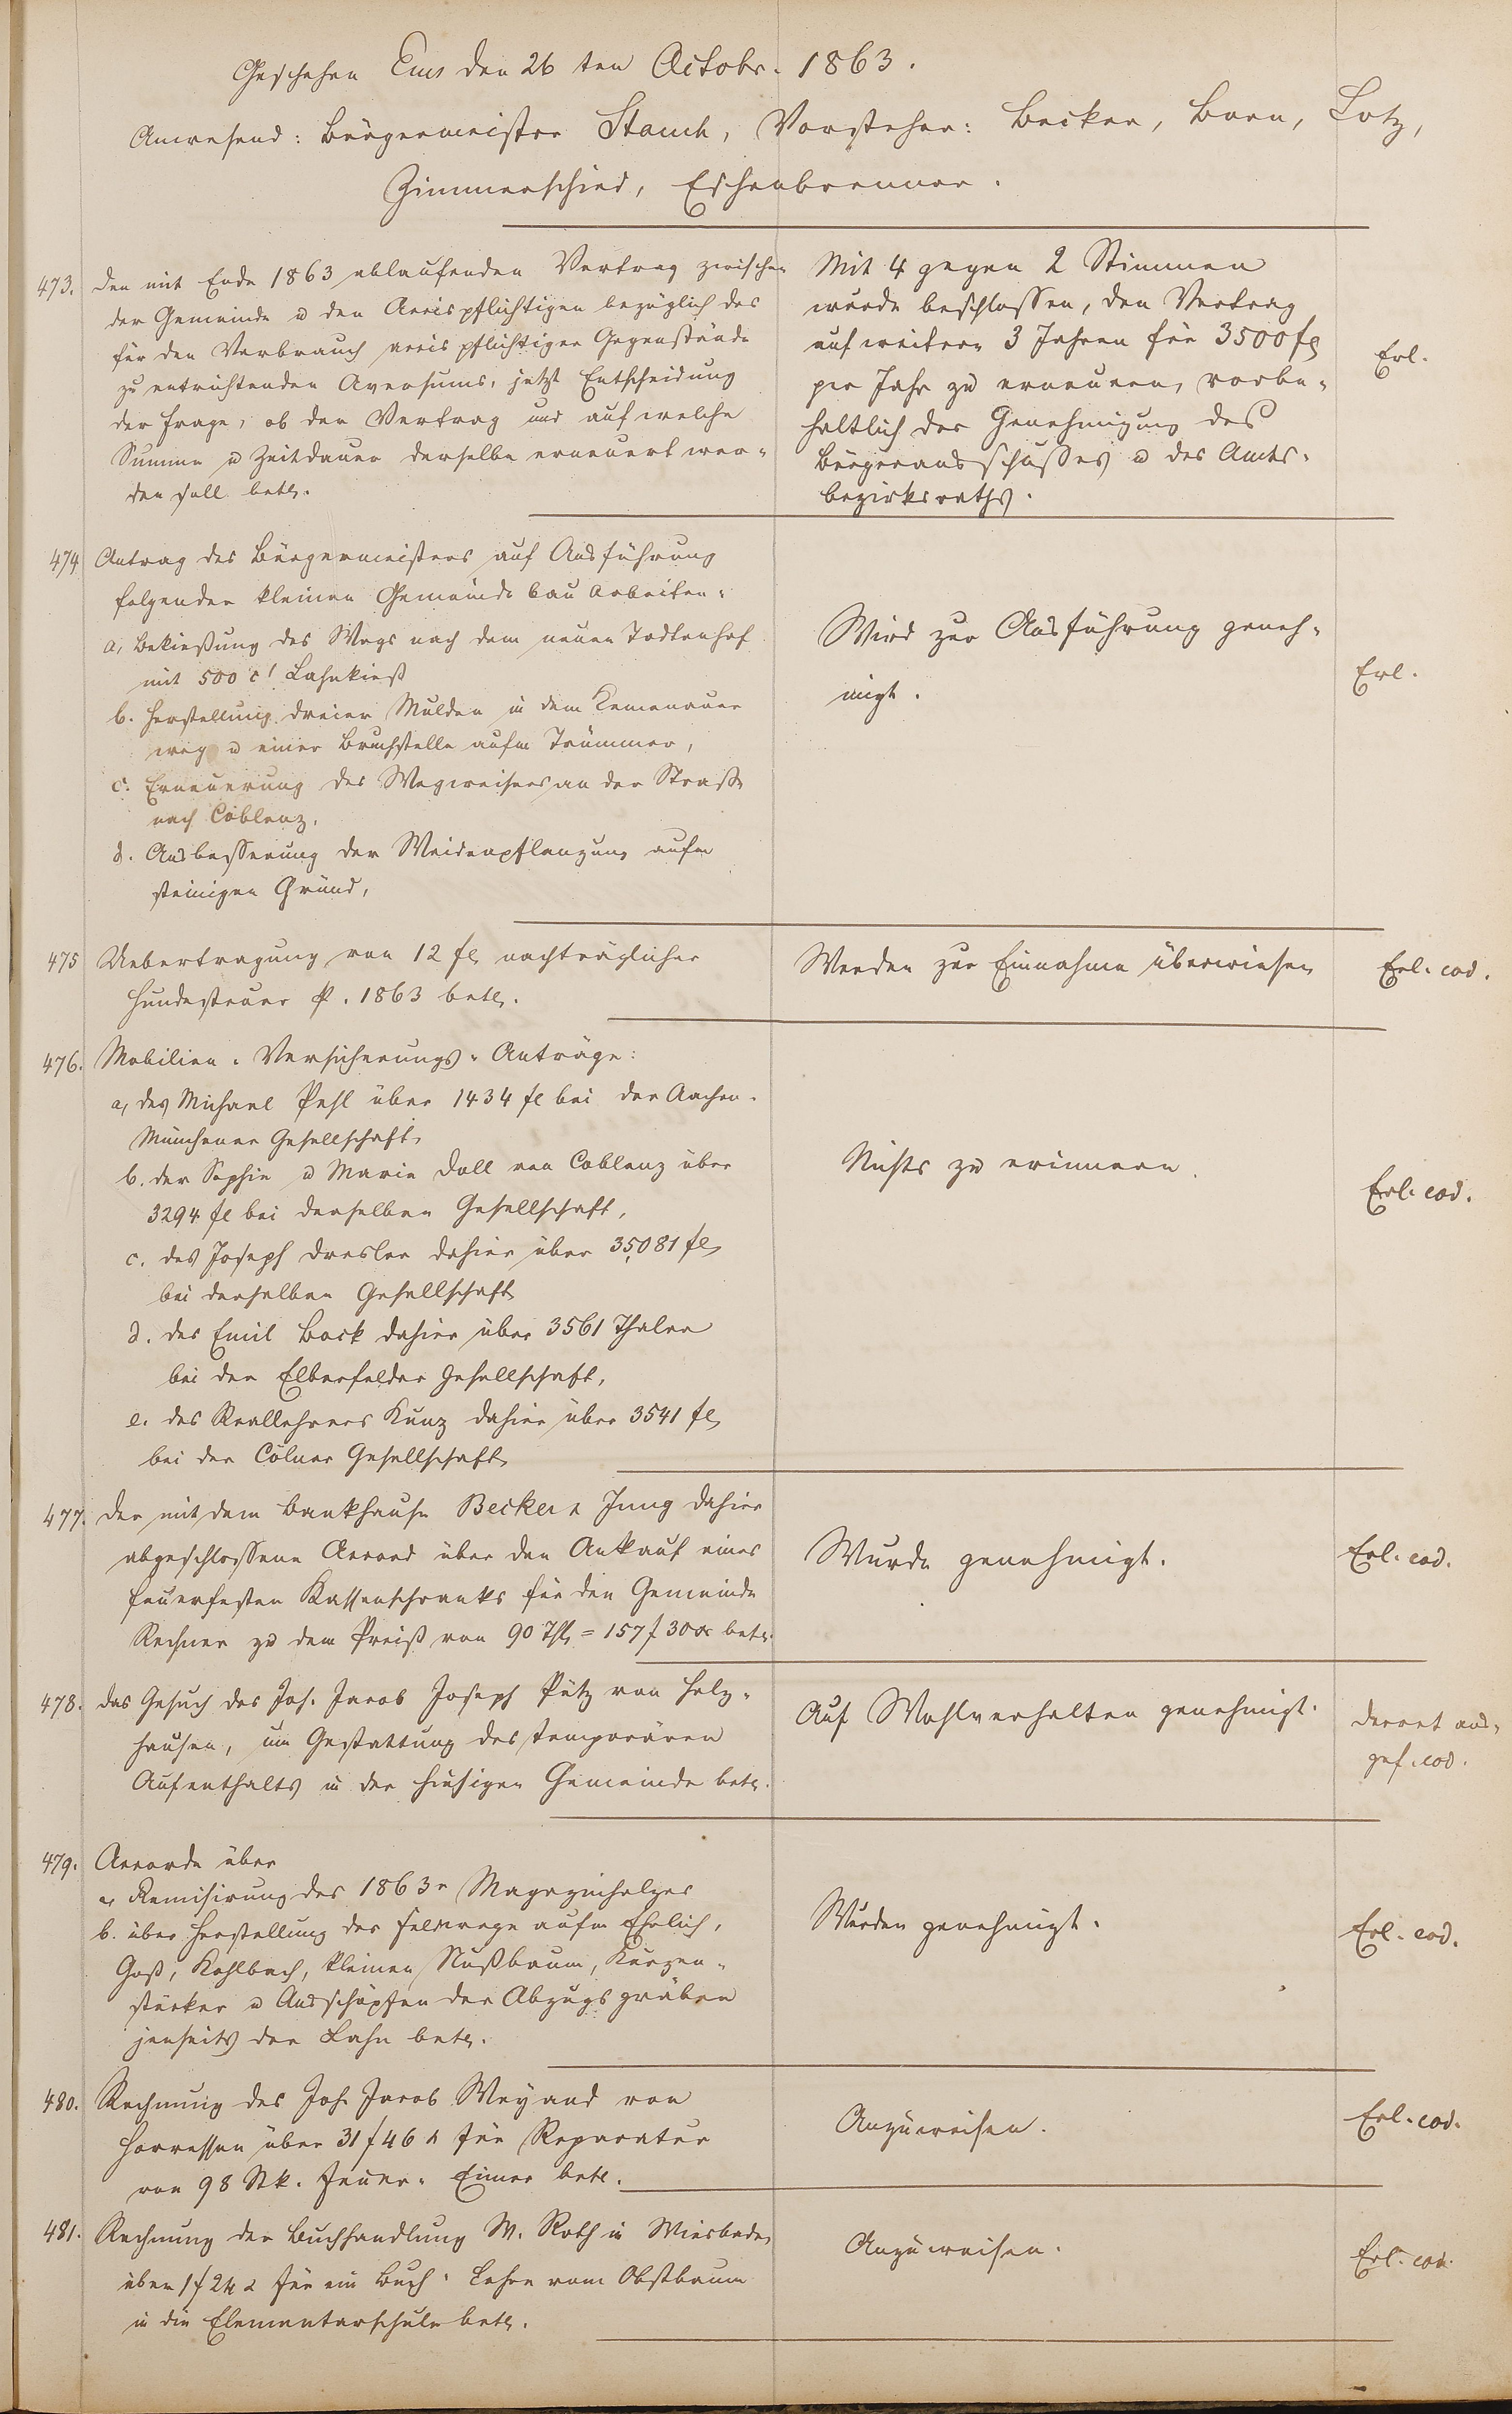 Geschehen Ems den 26ten Octobr. 1863.
Anwesend: Bürgermeister Stauch, Vorsteher: Becker, Born, Lotz,
Zimmerschied, Eschenbrenner.
473. Den mit Ende 1863 ablaufenden Vertrag zwischen
der Gemeinde u den Accispflichtigen bezüglich des
für den Verbrauch accispflichtiger Gegenstände
zu entrichtenden Aversums, jetzt Entscheidung
der Frage, ob der Vertrag und auf welche
Summe u Zeitdauer derselbe erneuert wer-
den soll betr.
Mit 4 gegen 2 Stimmen
wurde beschlossen, den Vertrag
auf weitere 3 Jahren für 3500 fl
per Jahr zu erneuern, vorbe-
haltlich der Genehmigung des
Bürgerausschußes u des Amts-
bezirksraths.
Erl.
474 Antrag des Bürgermeisters auf Ausführung
folgender kleinen Gemeindebauarbeiten:
a, Bekießung des Wegs nach dem neuen Todtenhof
mit 500 c' Lahnkieß
b. Herstellung dreier Mulden in dem Kemenauer
weg u einer Bruchstelle aufm Trümmer,
c. Erneuerung des Wegweisers an der Straße
nach Coblenz,
d. Ausbesserung der Weidenpflanzung aufm
steinigen Gründ,
Wird zur Ausführung geneh-
migt.
Erl.
475 Uebertragung von 12 fl nachträglicher
Hundesteuer p. 1863 betr.
Werden zur Einnahme überwiesen
Erl. eod.
476. Mobilien-Versicherungs-Anträge:
a, des Michael Pehl über 1434 fl bei der Aachen-
Münchener Gesellschaft,
b. der Sophie u Marie Doll von Coblenz über
3294 fl bei derselben Gesellschaft,
c. des Joseph Dresler dahier über 35,081 fl
bei derselben Gesellschaft
d. des Emil Bock dahier über 3561 Thaler
bei der Elberfelder Gesellschaft,
e. des Reallehrers Kunz dahier über 3541 fl
bei der Cölner Gesellschaft,
Nichts zu erinnern.
Erl. eod.
477. Der mit dem Bankhause Becker & Jung dahier
abgeschlossene Accord über den Ankauf eines
feuerfesten Kassenschranks für den Gemeinde
Rechner zu dem Preiß von 90 Th = 157 f 30 x betr.
Wurde genehmigt.
Erl. eod.
478. Das Gesuch des Joh. Jacob Joseph Pütz von Holz-
hausen, um Gestattung des temporären
Aufenthalts in der hiesigen Gemeinde betr.
Auf Wohlverhalten genehmigt.
Decret aus-
gef. eod.
479. Accorde über
a, Remisirung des 1863r Magazinholzes
b. über Herstellung der Feldwege aufm Ehrlich,
Goß, Kohlbach, kleinen Nußbaum, Kurzen-
stücker u Ausschöpfen der Abzugsgräben
jenseits der Lahn betr.
Wurden genehmigt.
Erl. eod.
480. Rechnung des Joh. Jacob Weyand von
Horressen über 31 f 46 x für Reparatur
von 98 Stk. Feuer-Eimer betr.
Anzuweisen.
Erl. eod.
481. Rechnung der Buchhandlung W. Roth in Wiesbaden
über 1 f 24 x für ein Buch: Lehre vom Obstbaum
in die Elementarschule betr.
Anzuweisen.
Erl. eod.